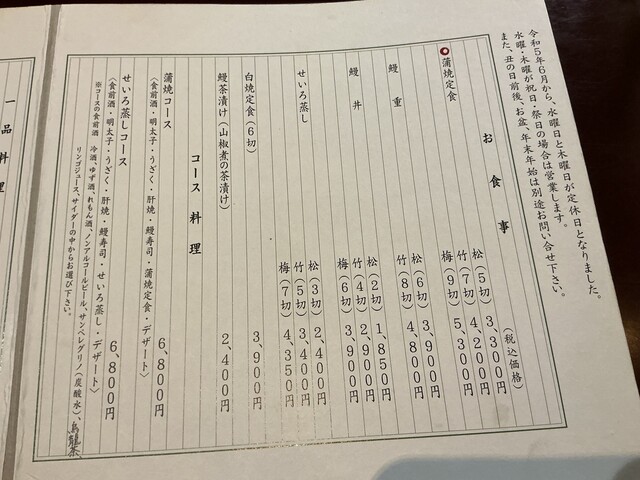 令和5年6月から、水曜日と木曜日が定休日となりました。
水曜・木曜が祝日・祭日の場合は営業します。
また、丑の日前後、お盆、年末年始は別途お問い合せ下さい。
お食事
(税込価格)
蒲焼定食
松(5切) 3,300円
竹(7切) 4,200円
梅(9切) 5,300円
鰻重
松(6切) 3,900円
竹(8切) 4,800円
鰻丼
松(2切) 1,850円
竹(4切) 2,900円
梅(6切) 3,900円
せいろ蒸し
松(3切) 2,400円
竹(5切) 3,400円
梅(7切) 4,350円
白焼定食(6切) 3,900円
鰻茶漬け(山椒煮の茶漬け) 2,400円
コース料理
蒲焼コース 6,800円
〈食前酒・明太子・うざく・肝焼・鰻寿司・蒲焼定食・デザート〉
せいろ蒸しコース 6,800円
〈食前酒・明太子・うざく・肝焼・鰻寿司・せいろ蒸し・デザート〉
※コースの食前酒 冷酒、ゆず酒、れもん酒、ノンアルコールビール、サンペレグリノ(炭酸水)、烏龍茶
リンゴジュース、サイダーの中からお選び下さい。
一品料理